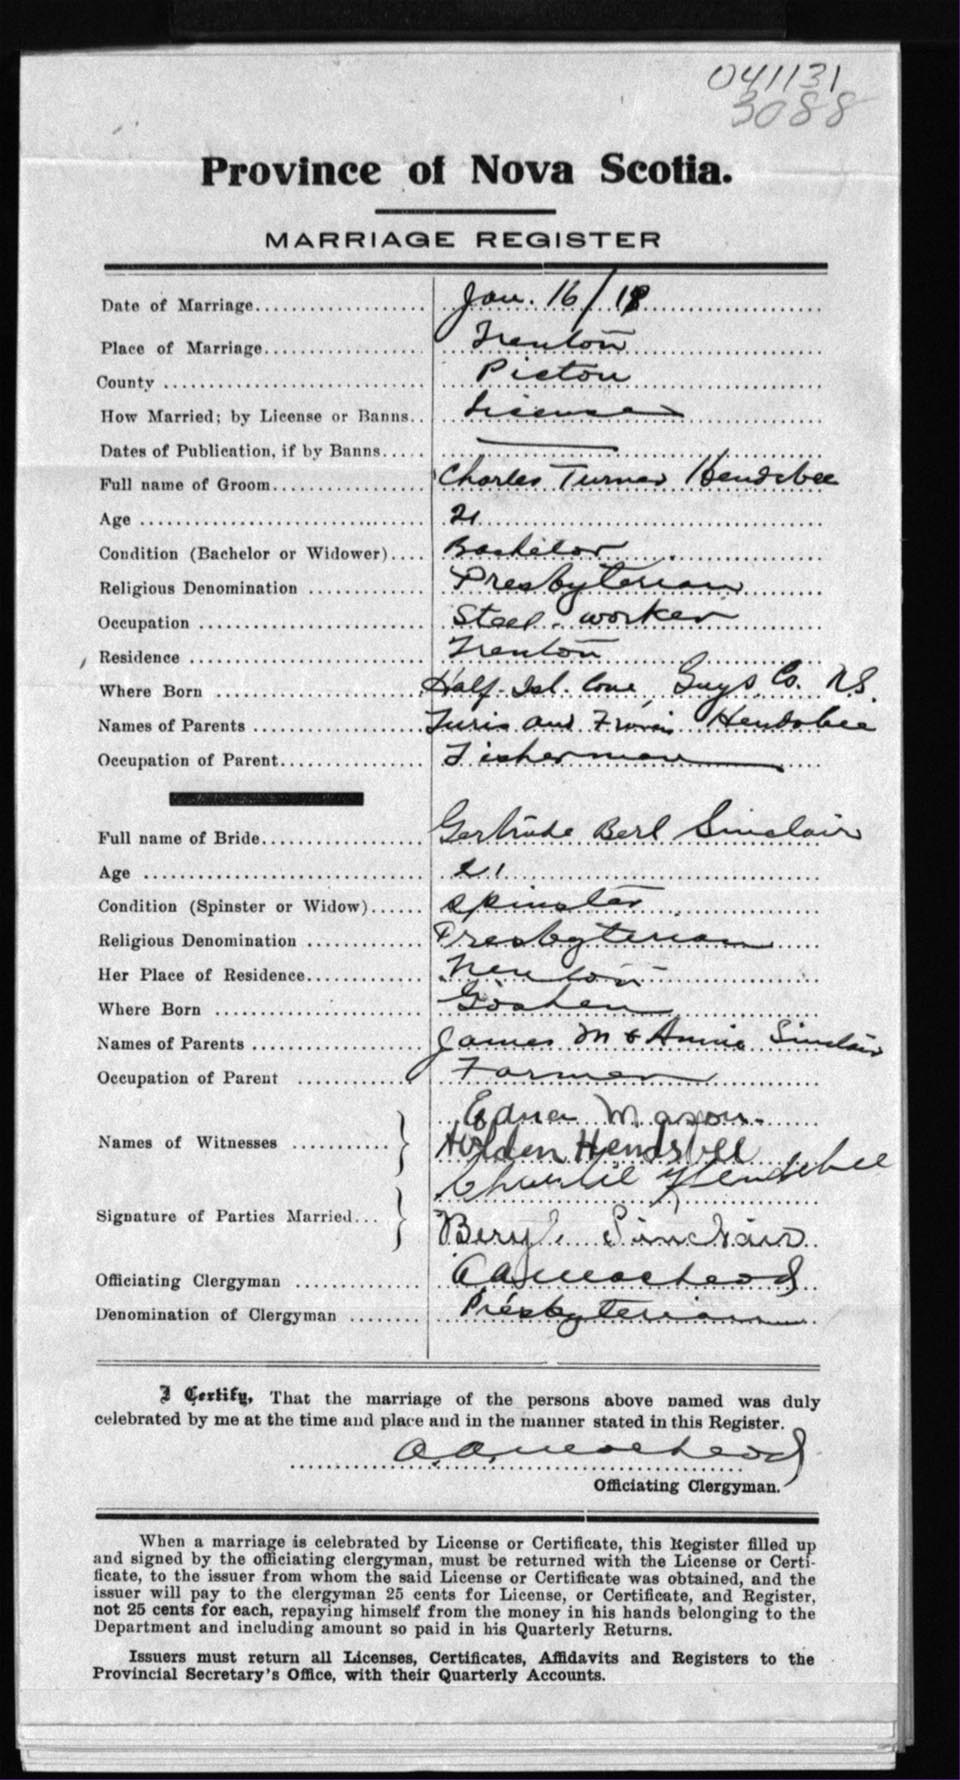 041131
3088
Province of Nova Scotia.
MARRIAGE REGISTER
Date of Marriage Jan. 16/18
Place of Marriage Trenton
County Pictou
How Married; by License or Banns License
Dates of Publication, if by Banns
Full name of Groom Charles Turner Hendsbee
Age 21
Condition (Bachelor or Widower) Bachelor
Religious Denomination Presbyterian
Occupation Steel worker
Residence Trenton
Where Born Half Isl. Cove, Guys. Co. N.S.
Names of Parents and Hendsbee
Occupation of Parent Fisherman
Full name of Bride Gertrude Berl Sinclair
Age 21
Condition (Spinster or Widow) Spinster
Religious Denomination Presbyterian
Her Place of Residence Trenton
Where Born Goshen
Names of Parents James M & Annie Sinclair
Occupation of Parent Farmer
Edna Mason
Names of Witnesses Holden Hendsbee
Charlie Hendsbee
Signature of Parties Married... Beryl Sinclair
Officiating Clergyman A A Macleod
Denomination of Clergyman Presbyterian
I Certify, That the marriage of the persons above named was duly
celebrated by me at the time and place and in the manner stated in this Register.
A. A. Macleod
Officiating Clergyman.
When a marriage is celebrated by License or Certificate, this Register filled up
and signed by the officiating clergyman, must be returned with the License or Certi-
ficate, to the issuer from whom the said License or Certificate was obtained, and the
issuer will pay to the clergyman 25 cents for License, or Certificate, and Register,
not 25 cents for each, repaying himself from the money in his hands belonging to the
Department and including amount so paid in his Quarterly Returns.
Issuers must return all Licenses, Certificates, Affidavits and Registers to the
Provincial Secretary's Office, with their Quarterly Accounts.